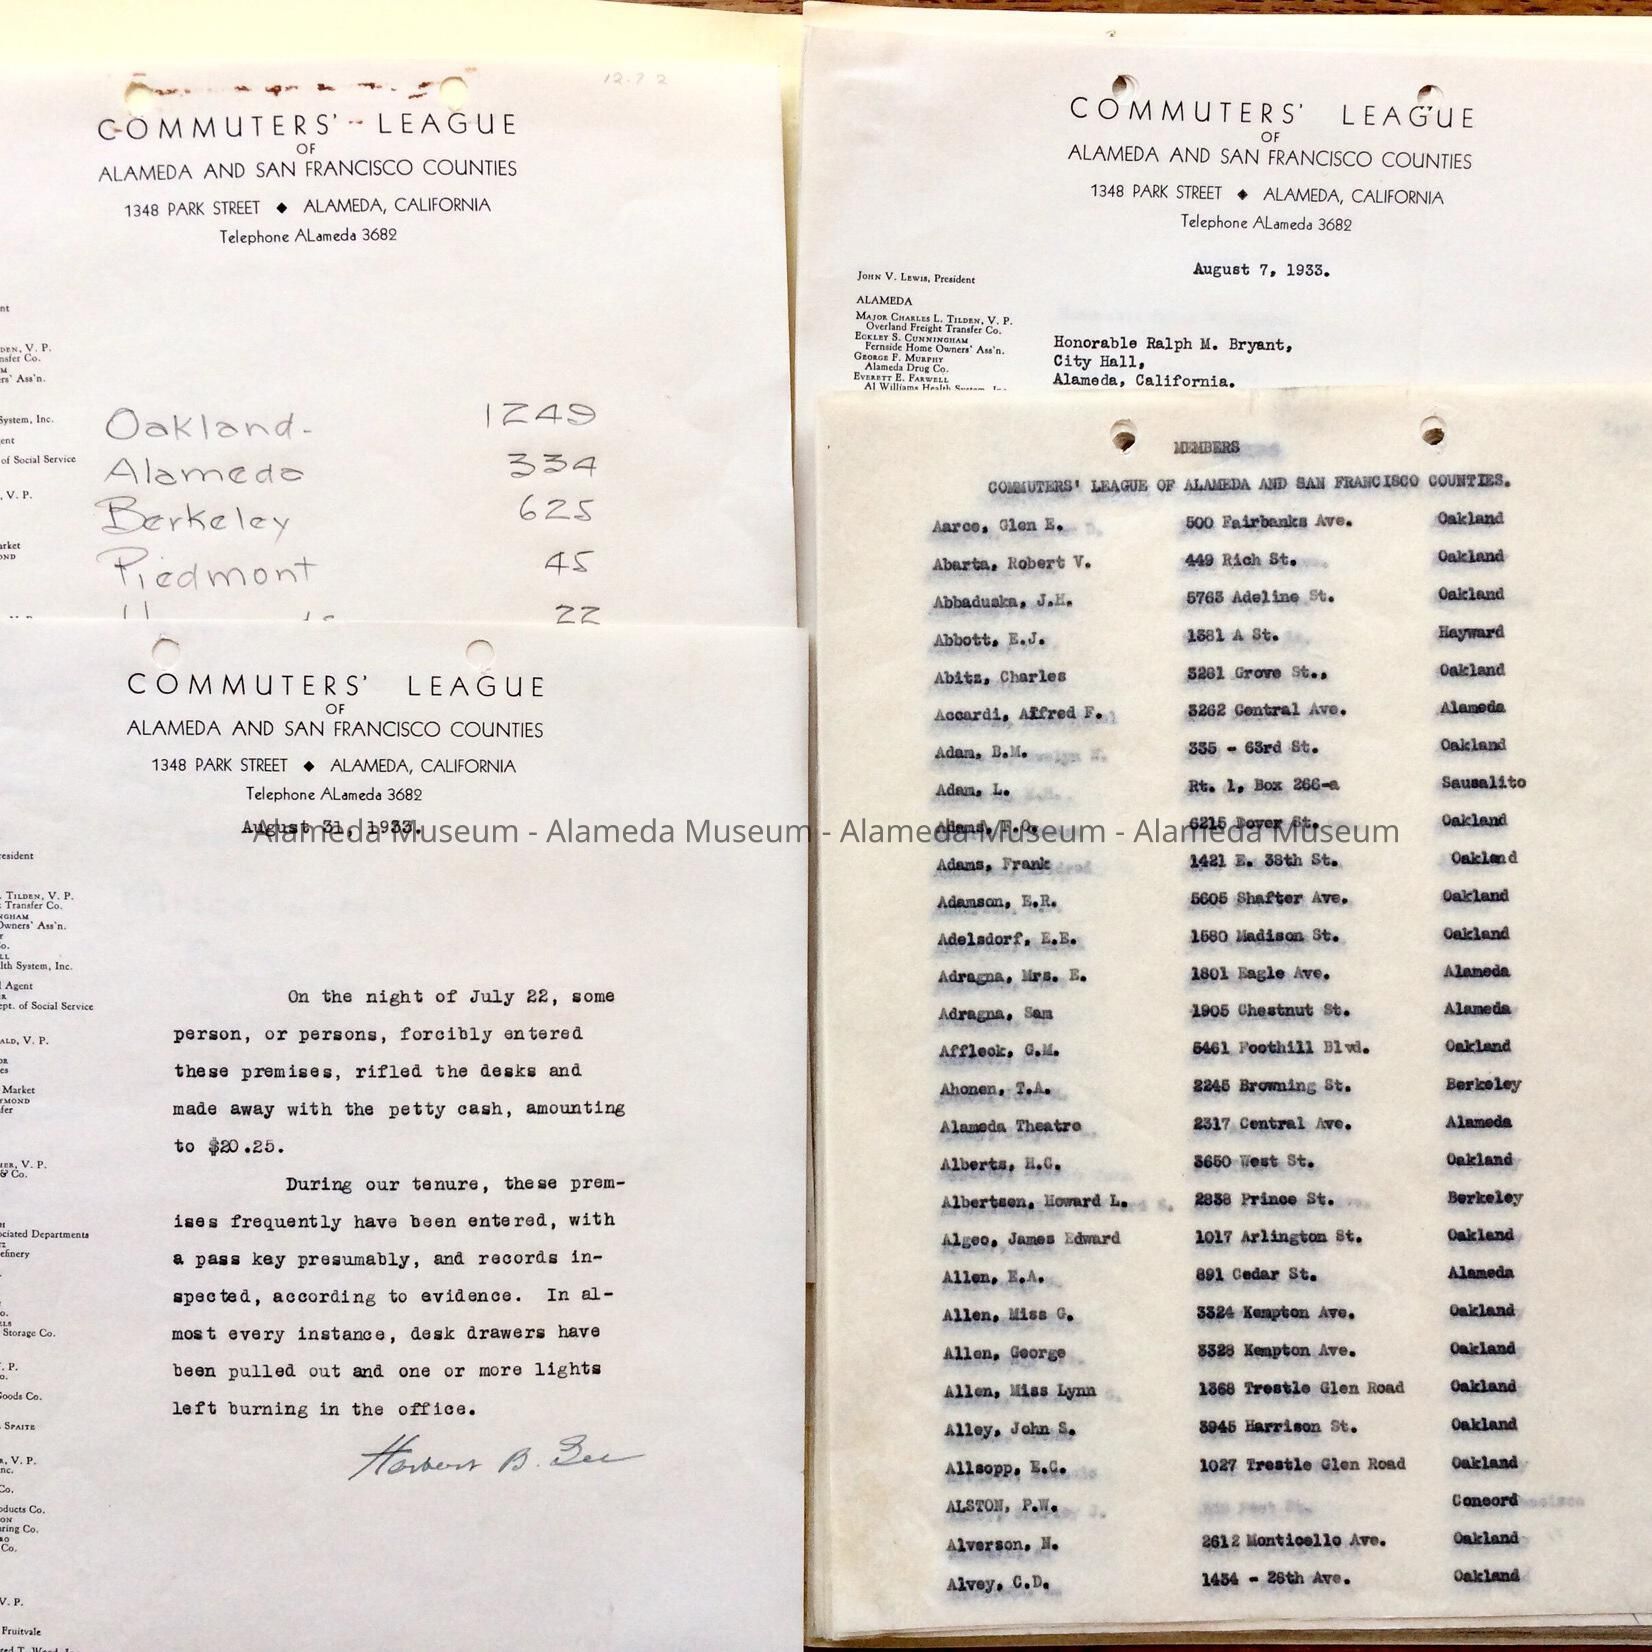 12-7 2
COMMUTERS' LEAGUE
OF
ALAMEDA AND SAN FRANCISCO COUNTIES
1348 PARK STREET ◆ ALAMEDA, CALIFORNIA
Telephone ALameda 3682
nt
DEN, V. P.
nsfer Co.
M
ers' Ass'n.
System, Inc.
ent
of Social Service
, V. P.
arket
OND
Oakland- 1249
Alameda 334
Berkeley 625
Piedmont 45
22
COMMUTERS' LEAGUE
OF
ALAMEDA AND SAN FRANCISCO COUNTIES
1348 PARK STREET ◆ ALAMEDA, CALIFORNIA
Telephone ALameda 3682
August 31, 1933.
resident
. TILDEN, V. P.
t Transfer Co.
NGHAM
Owners' Ass'n.
Y
o.
LL
lth System, Inc.
l Agent
R
ept. of Social Service
ALD, V. P.
OR
es
Market
YMOND
fer
HER, V. P.
& Co.
H
ociated Departments
efinery
o.
ELS
Storage Co.
V. P.
o.
Goods Co.
. SPAITE
R, V. P.
nc.
Co.
oducts Co.
ON
uring Co.
RO
Co.
V. P.
Fruitvale
On the night of July 22, some
person, or persons, forcibly entered
these premises, rifled the desks and
made away with the petty cash, amounting
to $20.25.
During our tenure, these prem-
ises frequently have been entered, with
a pass key presumably, and records in-
spected, according to evidence. In al-
most every instance, desk drawers have
been pulled out and one or more lights
left burning in the office.
Herbert B. Gee
COMMUTERS' LEAGUE
OF
ALAMEDA AND SAN FRANCISCO COUNTIES
1348 PARK STREET ◆ ALAMEDA, CALIFORNIA
Telephone ALameda 3682
August 7, 1933.
JOHN V. LEWIS, President
ALAMEDA
MAJOR CHARLES L. TILDEN, V. P.
Overland Freight Transfer Co.
ECKLEY S. CUNNINGHAM
Fernside Home Owners' Ass'n.
GEORGE F. MURPHY
Alameda Drug Co.
EVERETT E. FARWELL
Al Williams Health System, Inc.
Honorable Ralph M. Bryant,
City Hall,
Alameda, California.
MEMBERS
COMMUTERS' LEAGUE OF ALAMEDA AND SAN FRANCISCO COUNTIES.
Aarce, Glen E. 500 Fairbanks Ave. Oakland
Abarta, Robert V. 449 Rich St. Oakland
Abbaduska, J.H. 5763 Adeline St. Oakland
Abbott, E.J. 1381 A St. Hayward
Abitz, Charles 3281 Grove St., Oakland
Accardi, Alfred F. 3262 Central Ave. Alameda
Adam, B.M. 335 - 63rd St. Oakland
Adam, L. Rt. 1, Box 266-a Sausalito
Adams, F.O. 6215 Dover St. Oakland
Adams, Frank 1421 E. 38th St. Oakland
Adamson, E.R. 5605 Shafter Ave. Oakland
Adelsdorf, E.E. 1580 Madison St. Oakland
Adragna, Mrs. E. 1801 Eagle Ave. Alameda
Adragna, Sam 1905 Chestnut St. Alameda
Affleck, G.M. 5461 Foothill Blvd. Oakland
Ahonen, T.A. 2245 Browning St. Berkeley
Alameda Theatre 2317 Central Ave. Alameda
Alberts, H.C. 3650 West St. Oakland
Albertsen, Howard L. 2838 Prince St. Berkeley
Algeo, James Edward 1017 Arlington St. Oakland
Allen, E.A. 891 Cedar St. Alameda
Allen, Miss G. 3324 Kempton Ave. Oakland
Allen, George 3328 Kempton Ave. Oakland
Allen, Miss Lynn 1368 Trestle Glen Road Oakland
Alley, John S. 3945 Harrison St. Oakland
Allsopp, E.C. 1027 Trestle Glen Road Oakland
ALSTON, P.W. Concord
Alverson, N. 2612 Monticello Ave. Oakland
Alvey, C.D. 1434 - 26th Ave. Oakland
Alameda Museum - Alameda Museum - Alameda Museum - Alameda Museum